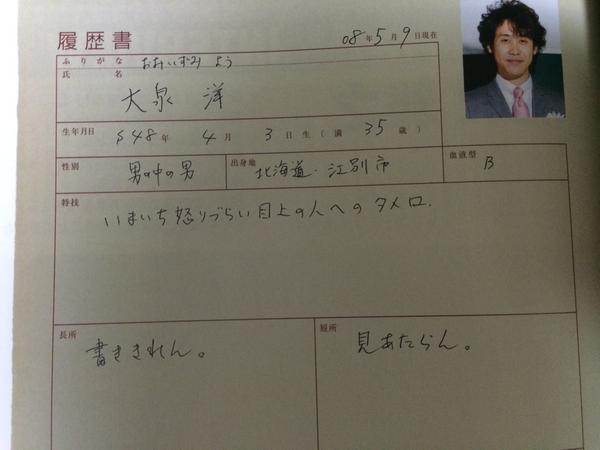 履歴書
08年5月9日現在
ふりがな おおいずみ よう
氏名
大泉 洋
生年月日 S48年 4月 3日生(満 35歳)
性別 男の中の男 出身地 北海道・江別市 血液型 B
特技
いまいち怒りづらい目上の人へのタメ口.
長所
書ききれん。
短所
見あたらん。